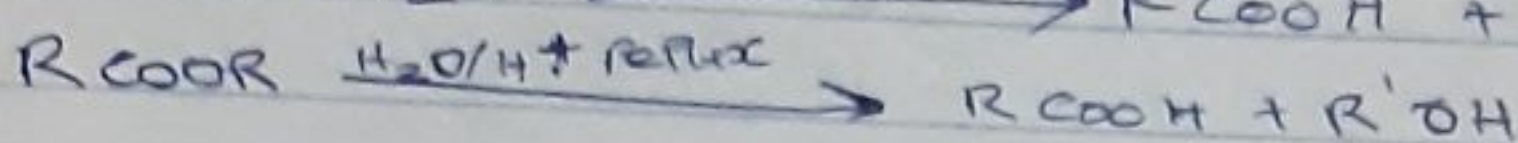 COOH +
RCOOR H₂O/H⁺ reflux → RCOOH + R'OH